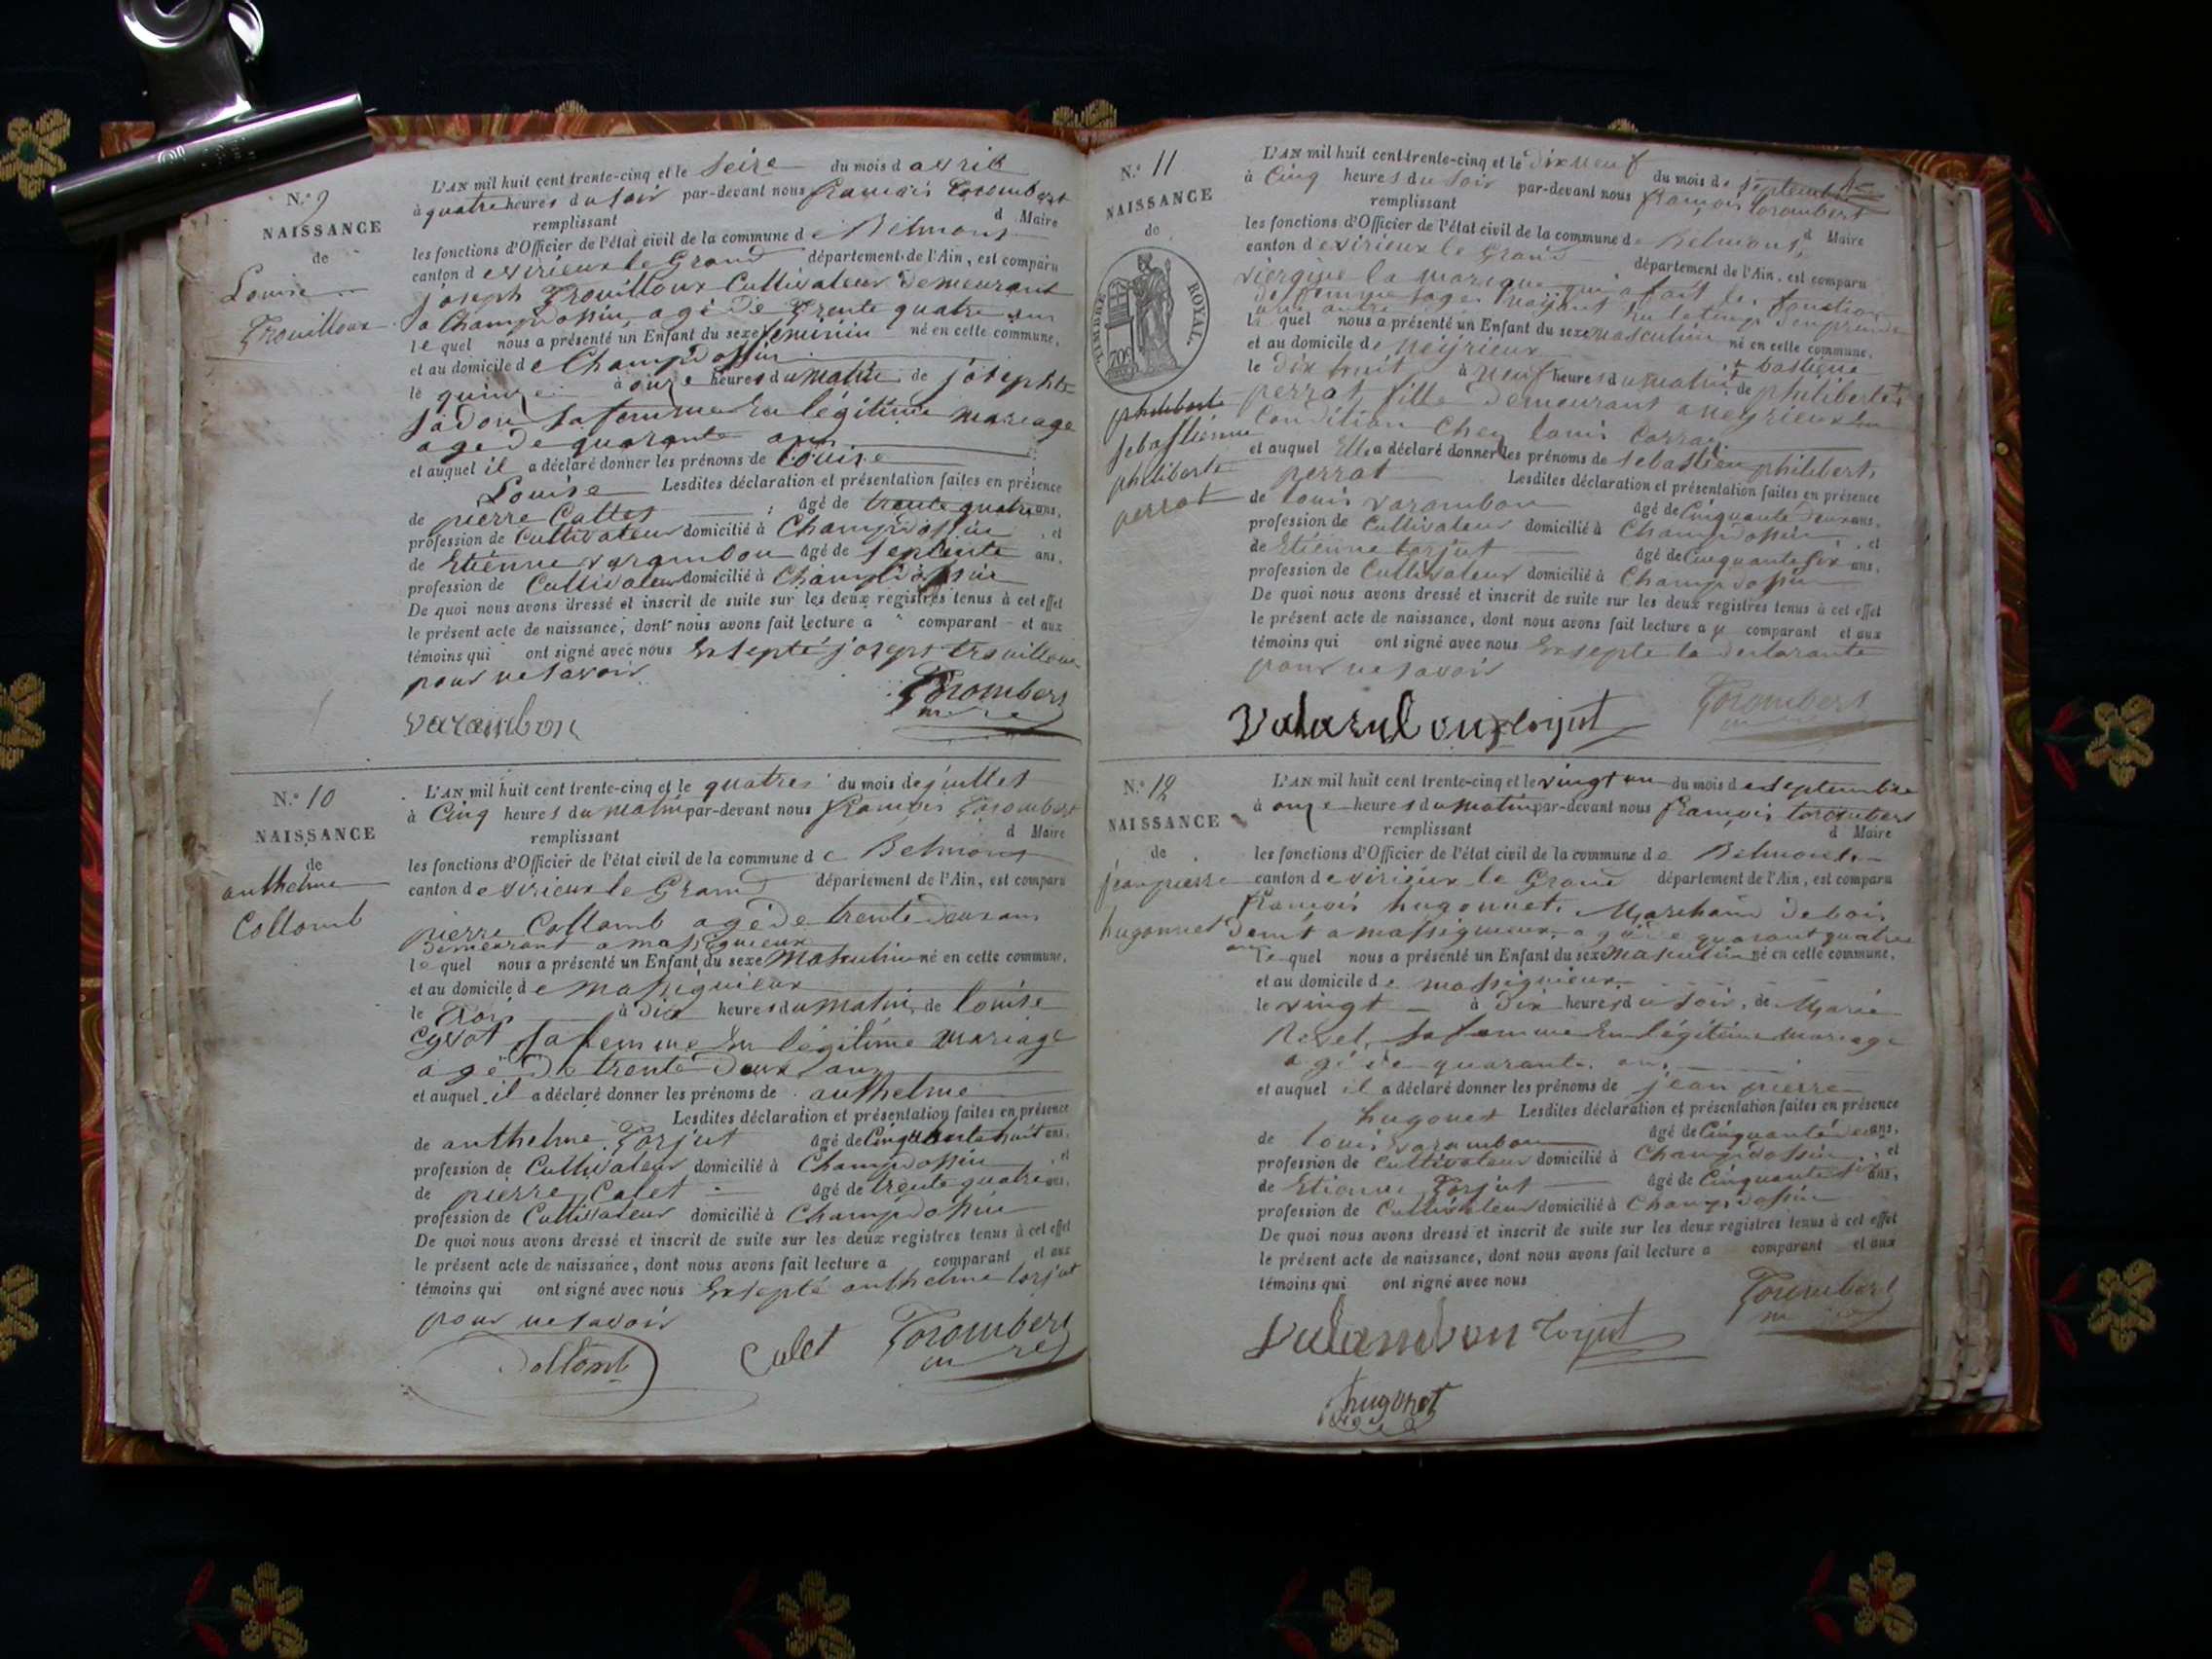 N.° 9
NAISSANCE
de
Louise
Trouilloux
L'AN mil huit cent trente-cinq et le seize du mois d avril
à quatre heures du soir par-devant nous françois Trombert
remplissant d Maire
les fonctions d'Officier de l'état civil de la commune de Belmont
canton de virieux le Grand département de l'Ain, est comparu
joseph Trouilloux Cultivateur Demeurant
a Champdossin agé de Trente quatre ans
lequel nous a présenté un Enfant du sexe feminin né en cette commune,
et au domicile de Champdossin
le quinze à onze heures du matin de josephte
sa femme en légitime mariage
agé de quarante ans
et auquel il a déclaré donner les prénoms de Louise
Louise Lesdites déclaration et présentation faites en présence
de pierre Callet âgé de trente quatre ans,
profession de Cultivateur domicilié à Champdossin, et
de Etienne varambon âgé de septente ans,
profession de Cultivateur domicilié à Champdossin
De quoi nous avons dressé et inscrit de suite sur les deux registres tenus à cet effet
le présent acte de naissance, dont nous avons fait lecture a comparant et aux
témoins qui ont signé avec nous Exsepté joseph trouilloux
pour ne savoir
Trombert
maire
varambon
N.° 10
NAISSANCE
de
anthelme
Collomb
L'AN mil huit cent trente-cinq et le quatres du mois de juillet
à Cinq heures du matin par-devant nous françois Trombert
remplissant d Maire
les fonctions d'Officier de l'état civil de la commune de Belmont
canton de virieux le Grand département de l'Ain, est comparu
pierre Collomb agé de trente deux ans
demeurant a massignieux
lequel nous a présenté un Enfant du sexe Masculin né en cette commune,
et au domicile de massignieux
le trois à dix heures du matin de louise
sa femme En légitime mariage
agé de trente Deux ans
et auquel il a déclaré donner les prénoms de anthelme
Lesdites déclaration et présentation faites en présence
de anthelme Torjut âgé de Cinquante huit ans,
profession de Cultivateur domicilié à Champdossin, et
de pierre Calet âgé de trente quatre ans,
profession de Cultivateur domicilié à Champdossin
De quoi nous avons dressé et inscrit de suite sur les deux registres tenus à cet effet
le présent acte de naissance, dont nous avons fait lecture a comparant et aux
témoins qui ont signé avec nous Exsepté anthelme torjut
pour ne savoir
Collomb Calet Trombert
maire
N.° 11
NAISSANCE
de
TIMBRE ROYAL.
philiberte
sebastienne
philiberte
perrat
L'AN mil huit cent trente-cinq et le dix neuf du mois de septembre
à Cinq heures du soir par-devant nous françois Trombert
remplissant d Maire
les fonctions d'Officier de l'état civil de la commune de Belmont,
canton de virieux le Grand département de l'Ain, est comparu
qui a fait les fonctions
de femme sage
lequel nous a présenté un Enfant du sexe masculin né en cette commune,
et au domicile de neyrieux
le dix huit à neuf heures du matin de philiberte
perrat fille Demeurant a neyrieux En
Condition Chez louis
et auquel Elle a déclaré donner les prénoms de sebastien philibert
perrat Lesdites déclaration et présentation faites en présence
de louis varambon âgé de Cinquante deux ans,
profession de Cultivateur domicilié à Champdossin, et
de Etienne torjut âgé de Cinquante six ans,
profession de Cultivateur domicilié à Champdossin
De quoi nous avons dressé et inscrit de suite sur les deux registres tenus à cet effet
le présent acte de naissance, dont nous avons fait lecture a comparant et aux
témoins qui ont signé avec nous Exsepte la declarante
pour ne savoir
Trombert
varambon torjut
N.° 12
NAISSANCE
de
jean pierre
hugonnet
L'AN mil huit cent trente-cinq et le vingt un du mois de septembre
à onze heures du matin par-devant nous françois Trombert
remplissant d Maire
les fonctions d'Officier de l'état civil de la commune de Belmont
canton de virieux le Grand département de l'Ain, est comparu
françois hugonnet, Marchand de bois
demt a massignieux, agé de quarant quatre
ans lequel nous a présenté un Enfant du sexe masculin né en cette commune,
et au domicile de massignieux
le vingt à dix heures du soir, de Marie
Revel, sa femme En légitime mariage
agé de quarante ans
et auquel il a déclaré donner les prénoms de jean pierre
hugonet Lesdites déclaration et présentation faites en présence
de louis varambon âgé de Cinquante deux ans,
profession de Cultivateur domicilié à Champdossin, et
de Etienne Torjut âgé de Cinquante six ans,
profession de Cultivateur domicilié à Champdossin
De quoi nous avons dressé et inscrit de suite sur les deux registres tenus à cet effet
le présent acte de naissance, dont nous avons fait lecture a comparant et aux
témoins qui ont signé avec nous
Trombert
varambon torjut
hugonet